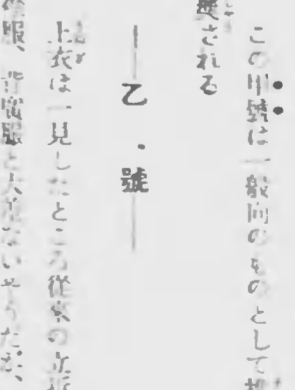 この甲號は一般向のものとして推
奬される
——乙・號——
上衣は一見したところ從來の立折
服、背廣服と大差ないやうだが、